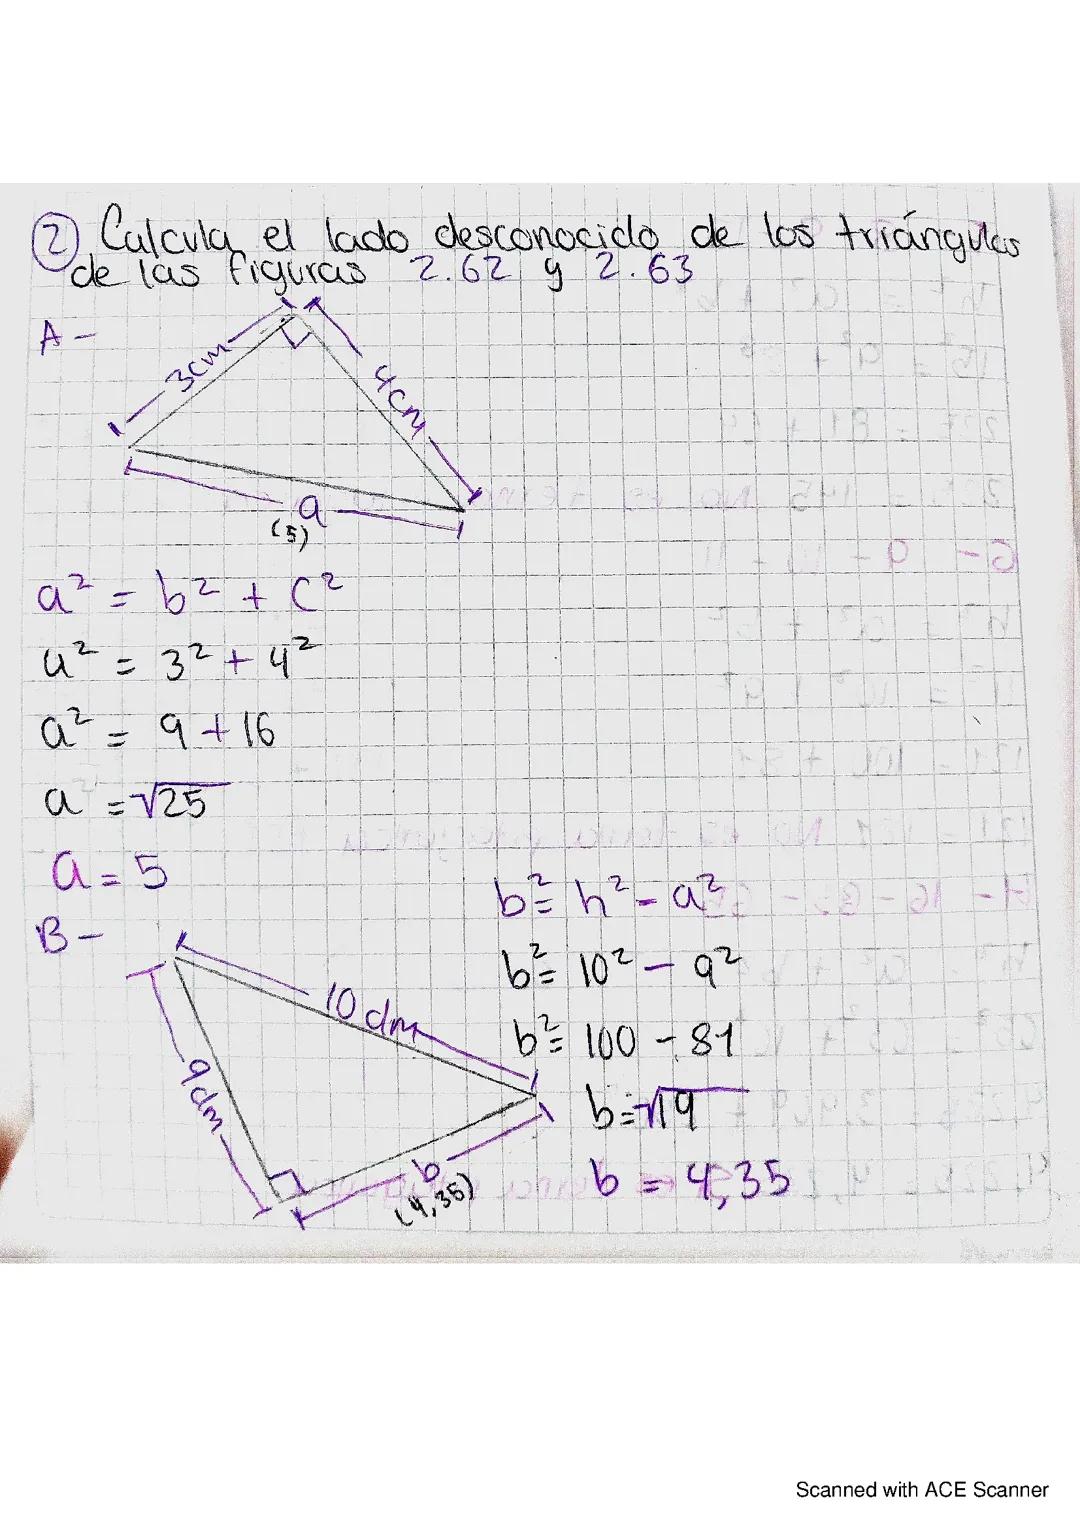 2) Calcula el lado desconocido de los triángulos
de las figuras 2.62 y 2.63
A-
3cm
4cm
a
(5)
a² = b² + c²
a² = 3² + 4²
a² = 9 + 16
a = √25
a = 5
B-
10 dm
9dm
b
(4,35)
b² = h² - a²
b² = 10² - 9²
b² = 100 - 81
b = √19
b = 4,35
Scanned with ACE Scanner